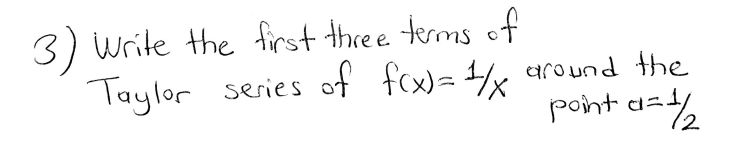 3) Write the first three terms of
Taylor series of f(x)=1/x around the
point a=1/2